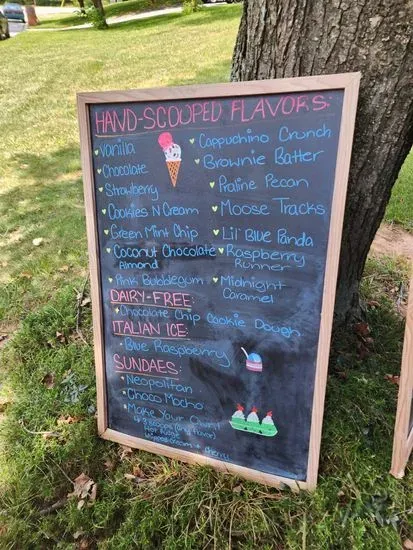 HAND-SCOOPED FLAVORS:
Vanilla
Chocolate
Strawberry
Cookies N Cream
Green Mint Chip
Coconut Chocolate
Almond
Pink Bubblegum
Cappuchino Crunch
Brownie Batter
Praline Pecan
Moose Tracks
Lil' Blue Panda
Raspberry
Runner
Midnight
Caramel
DAIRY-FREE:
Chocolate Chip Cookie Dough
ITALIAN ICE:
Blue Raspberry
SUNDAES:
Neopolitan
Choco Mocho
Make Your Own!
of flavor)
Hot fudge
cherry